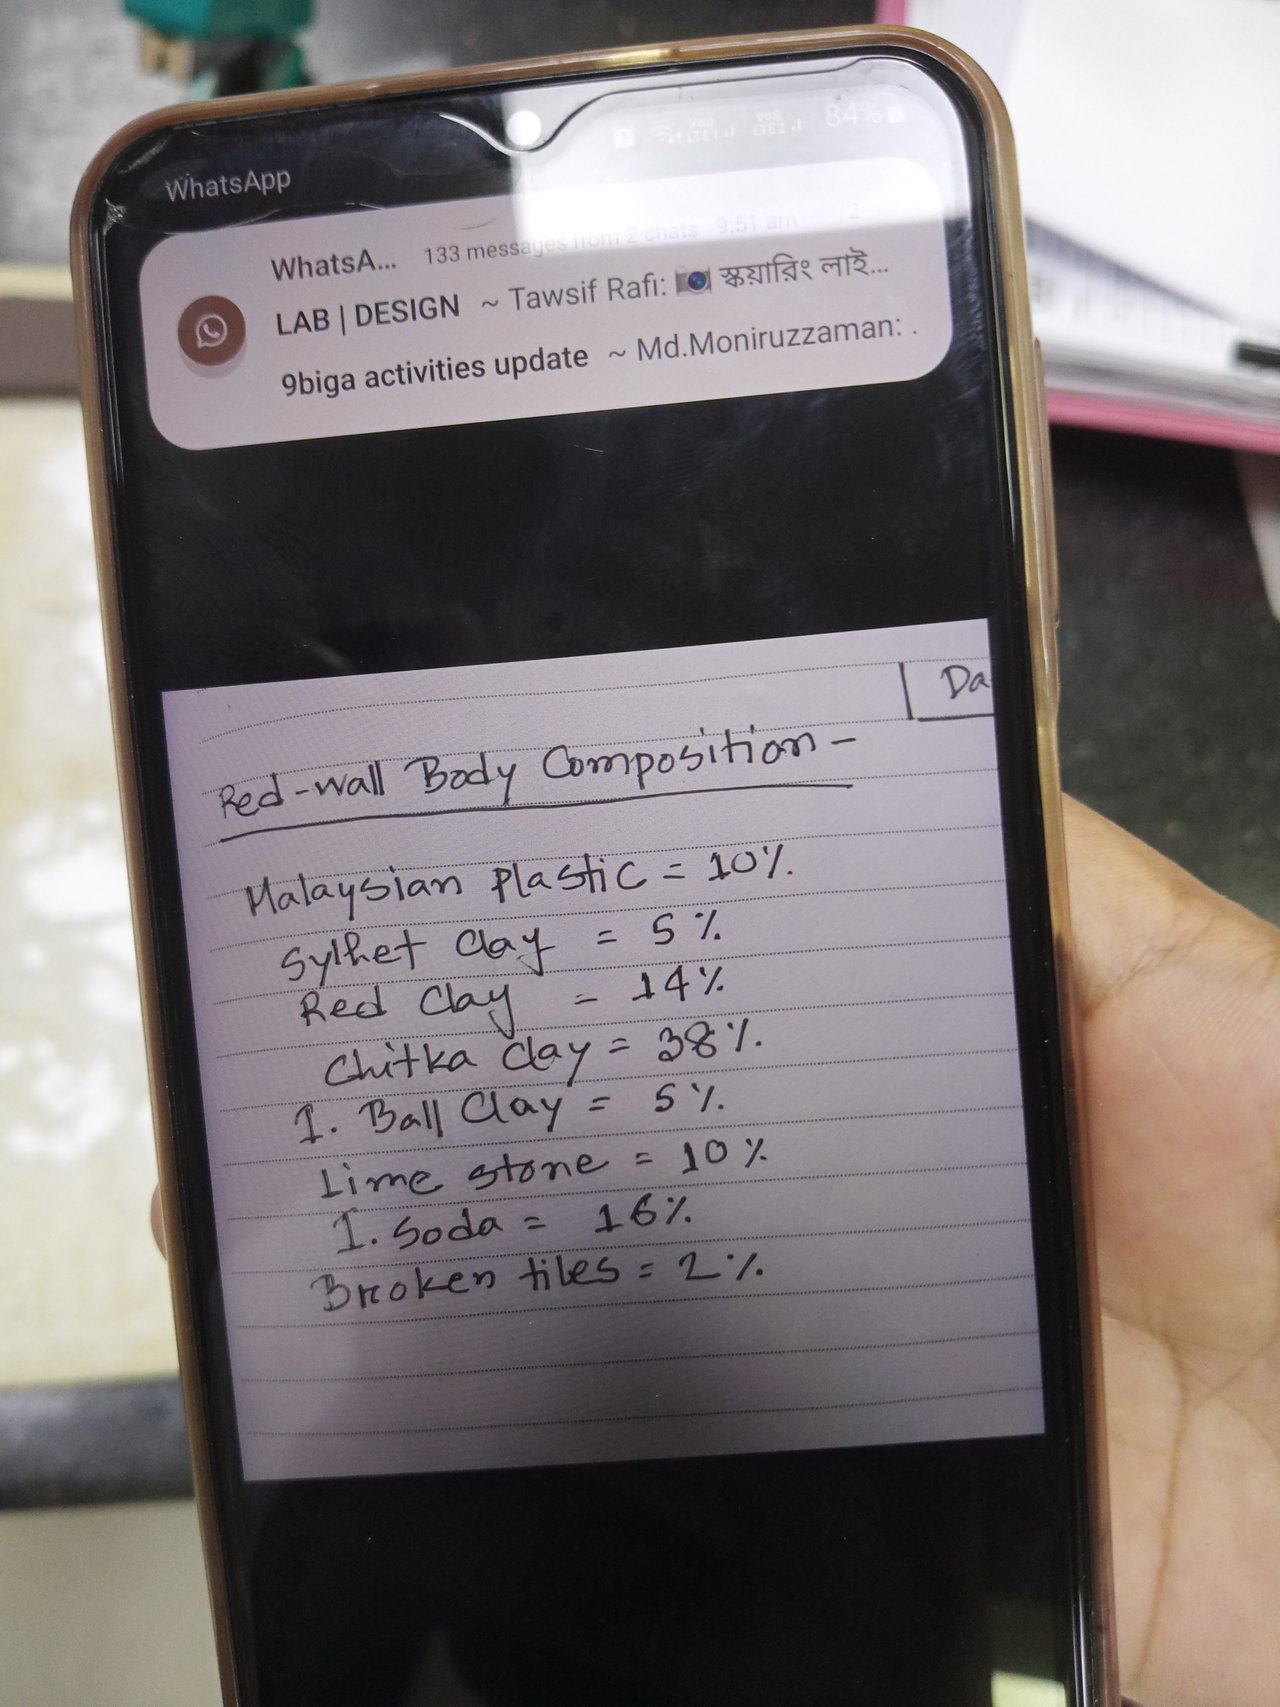 VoJ) LTE1 VoJ) LTE2 84%
WhatsApp
WhatsA... 133 messages from 2 chats 9:51 am 2
LAB | DESIGN ~ Tawsif Rafi: 📷 স্কয়ারিং লাই...
9biga activities update ~ Md.Moniruzzaman: .
Da
Red-wall Body Composition -
Malaysian plastic = 10%.
Sylhet Clay = 5%.
Red Clay = 14%
Chitka Clay = 38%.
I. Ball Clay = 5%.
Lime stone = 10%
I. Soda = 16%.
Broken tiles = 2%.